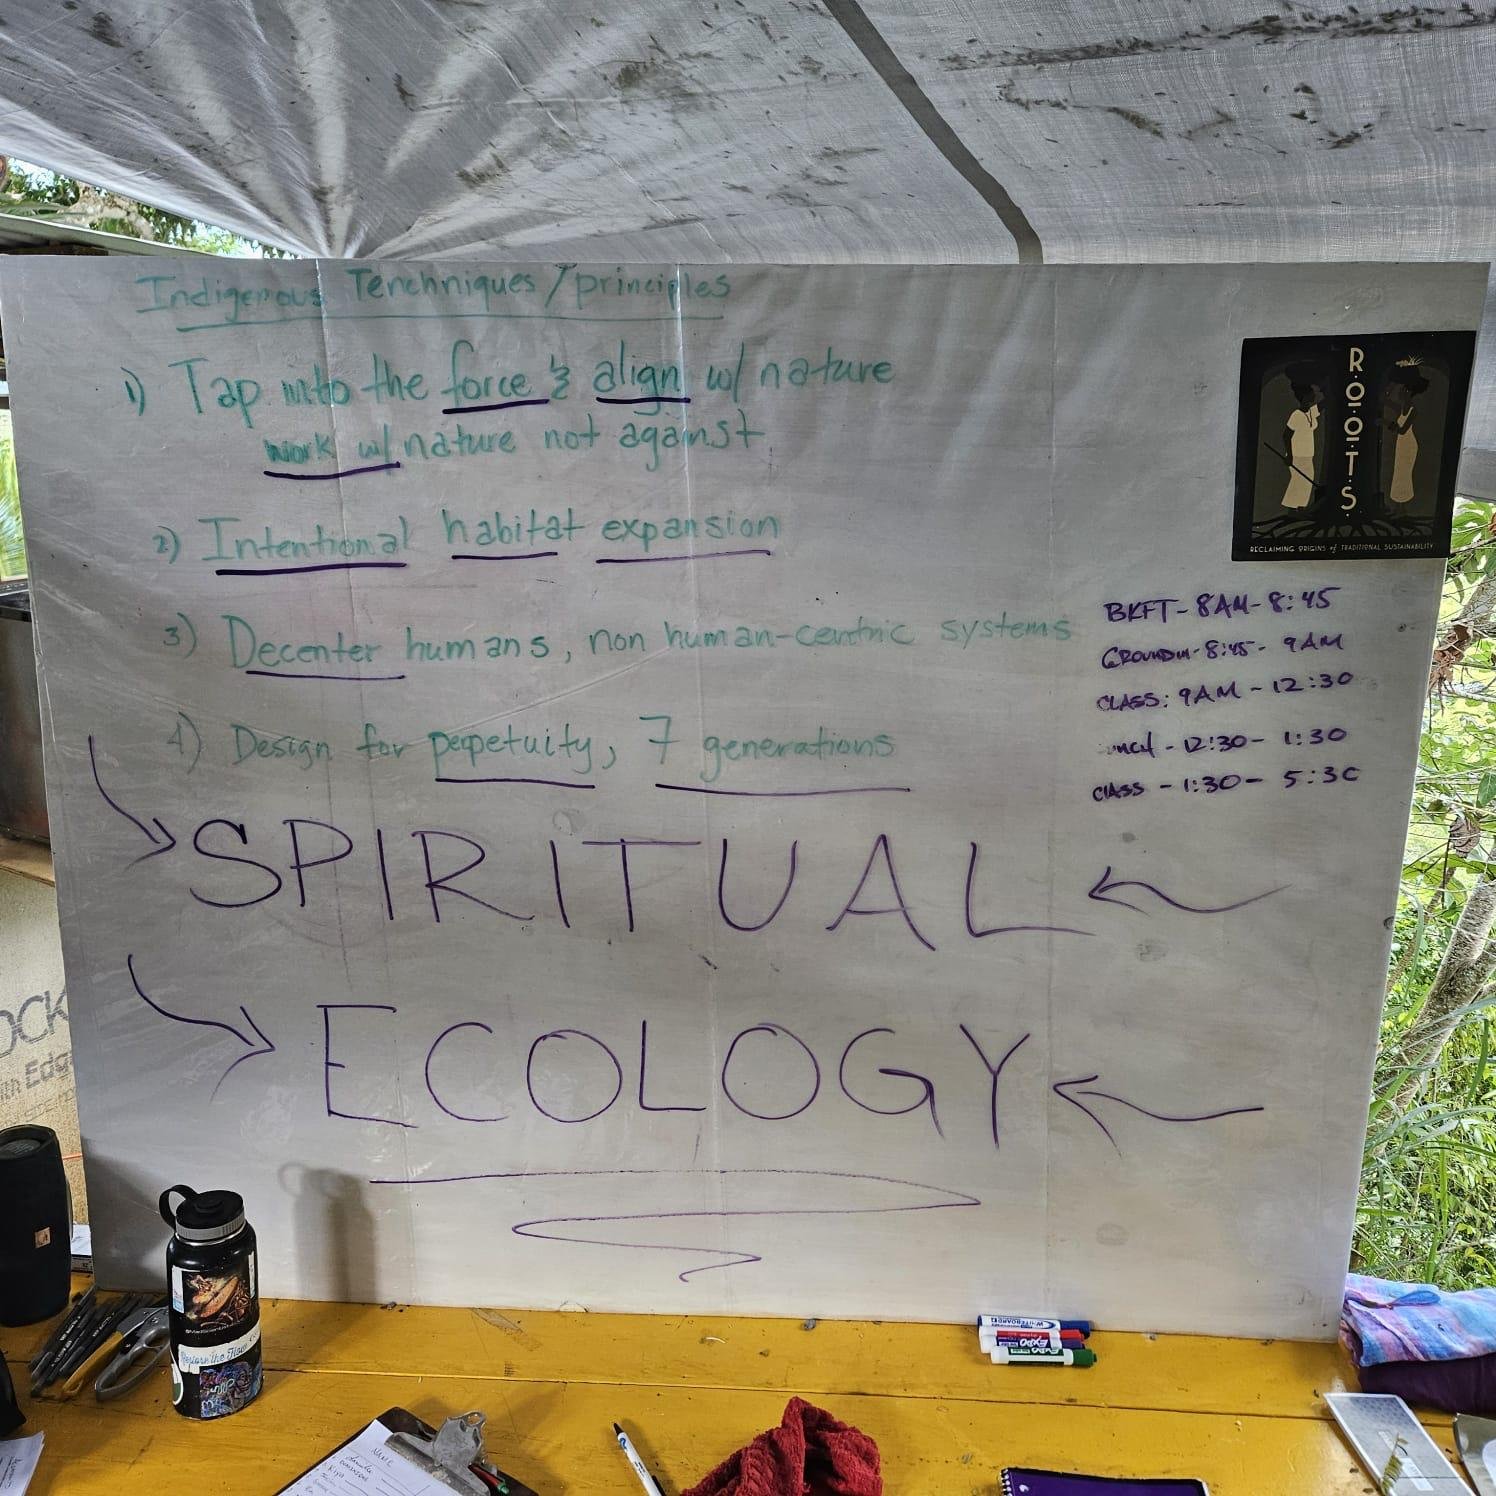 Indigenous Tenchniques/principles
1) Tap into the force & align w/ nature
work w/ nature not against
2) Intentional habitat expansion
3) Decenter humans, non human-centric systems
4) Design for perpetuity, 7 generations
SPIRITUAL
ECOLOGY
R.O.O.T.S.
RECLAIMING ORIGINS of TRADITIONAL SUSTAINABILITY
BKFT - 8AM - 8:45
8:45 - 9AM
CLASS: 9AM - 12:30
12:30 - 1:30
CLASS - 1:30 - 5:30
OCK
with Edg
Restore the Flow
WHITEBOARD
EXPO
EXPO
NAME